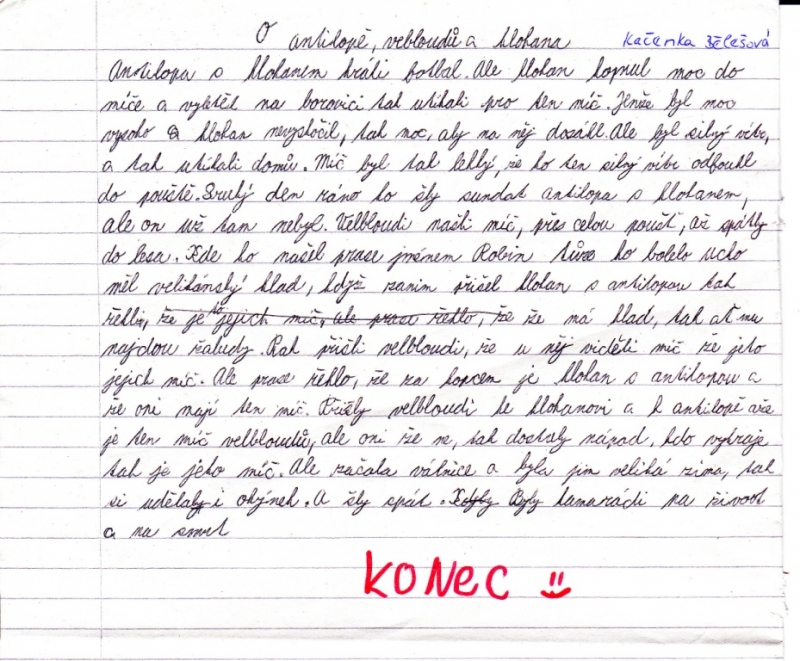 O antilopě, velbloudů a klokana
Kačenka Bělešová
Antilopa s klokanem hráli fotbal. Ale klokan kopnul moc do
míče a vyletěl na borovici tak utíkali pro ten míč. Jenže byl moc
vysoko a klokan nevyskočil, tak moc, aby na něj dosáhl. Ale byl silný vítr,
a tak utíkali domů. Míč byl tak lehký, že ho ten silný vítr odfoukl
do pouště. Druhý den ráno ho šly sundat antilopa s klokanem,
ale on už tam nebyl. Velbloudi našli míč, přes celou poušť, až zpátky
do lesa. Kde ho našel prase jménem Robin ho bolelo ucho
měl velikánský hlad, když zanim přišel klokan s antilopou tak
řekli, že je to jejich míč, ale prase řeklo, že že má hlad, tak ať mu
najdou žaludy. Pak přišli velbloudi, že u něj viděli míč že jeto
jejich míč. Ale prase řeklo, že za kopcem je klokan s antilopou a
že oni mají ten míč. Přišly velbloudi ke klokanovi a k antilopě aže
je ten míč velbloudů, ale oni že ne, tak dostaly nápad, kdo vyhraje
tak je jeho míč. Ale začala válnice a byla jim veliká zima, tak
si udělaly i ohýnek. A šly spát. Byly kamarádi na život
a na smrt
KONEC